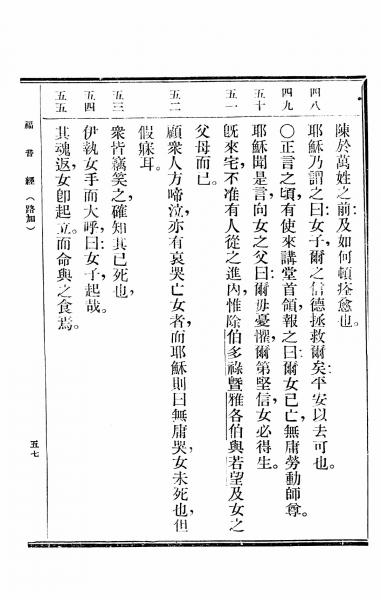 陳於萬姓之前、及如何頓痊愈也。
四八 耶穌乃謂之曰、女子、爾之信德拯救爾矣、平安以去可也。
四九 〇正言之頃、有使來講堂首領、報之曰、爾女已亡、無庸勞動師尊。
五十 耶穌聞是言、向女之父曰、爾毋憂懼、爾第堅信、女必得生。
五一 旣來宅、不准有人從之進內、惟除伯多祿曁雅各伯與若望及女之
父母而已。
五二 顧衆人方啼泣、亦有哀哭亡女者、而耶穌則曰、無庸哭、女未死也、但
假寐耳。
五三 衆皆竊笑之、確知其已死也、
五四 伊執女手而大呼、曰、女子、起哉。
五五 其魂返、女卽起立。而命與之食焉。
福音經（路加）
五七